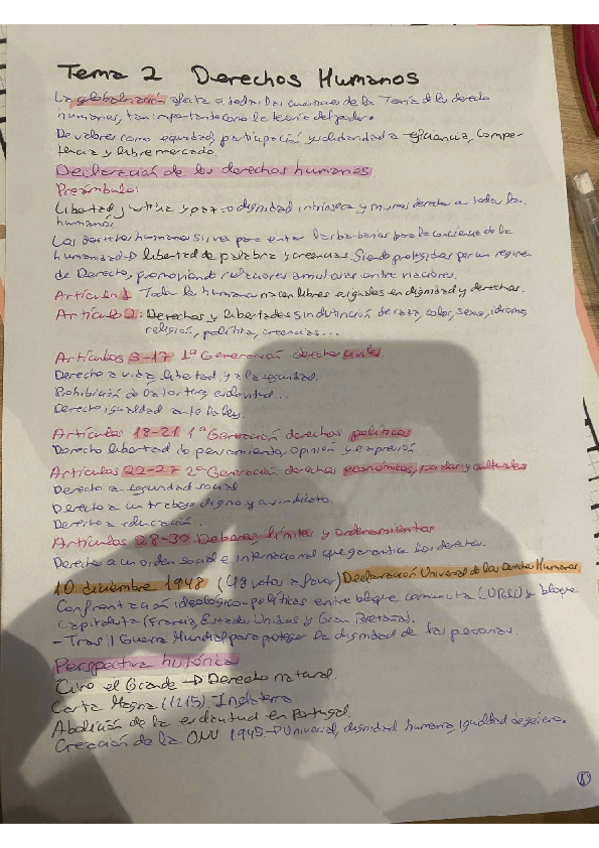 Tema 2 Derechos Humanos
La globalización afecta a todas las cuestiones de la Teoría de los derechos
humanos, tan importante como la teoría del poder.
De valores como equidad, participación y solidaridad a eficiencia, compe-
tencia y libre mercado.
Declaración de los derechos humanos
Preámbulo:
Libertad, justicia y paz → dignidad intrínseca y mismos derechos a todos los
humanos.
Los derechos humanos sirven para evitar barbaries para la conciencia de la
humanidad → libertad de palabra y creencias. Siendo protegidas por un régimen
de Derecho, promoviendo relaciones amistosas entre naciones.
Artículo 1 Todos los humanos nacen libres e iguales en dignidad y derechos.
Artículo 2: Derechos y libertades sin distinción de raza, color, sexo, idioma,
religión, política, creencias...
Artículos 3-17 1ª Generación derechos civiles
Derecho a vida, libertad y a la seguridad.
Prohibición de la tortura, esclavitud...
Derecho igualdad ante la ley.
Artículos 18-21 1ª Generación derechos políticos
Derecho libertad de pensamiento, opinión y expresión
Artículos 22-27 2ª Generación derechos económicos, sociales y culturales
Derecho a seguridad social
Derecho a un trabajo digno y a sindicato.
Derecho a educación.
Artículos 28-30 Deberes, límites y Ordenamientos
Derecho a un orden social e internacional que garantice los derechos.
10 diciembre 1948 (48 votos a favor) Declaración Universal de los Derechos Humanos
Confrontación ideológico-políticas entre bloque comunista (URSS) y bloque
capitalista (Francia, Estados Unidos y Gran Bretaña).
- Tras Guerra Mundial para proteger la dignidad de las personas.
Perspectiva histórica
Ciro el Grande → Derecho natural.
Carta Magna (1215) Inglaterra
Abolición de la esclavitud en Portugal.
Creación de la ONU 1945 → Universal, dignidad humana, igualdad de género.